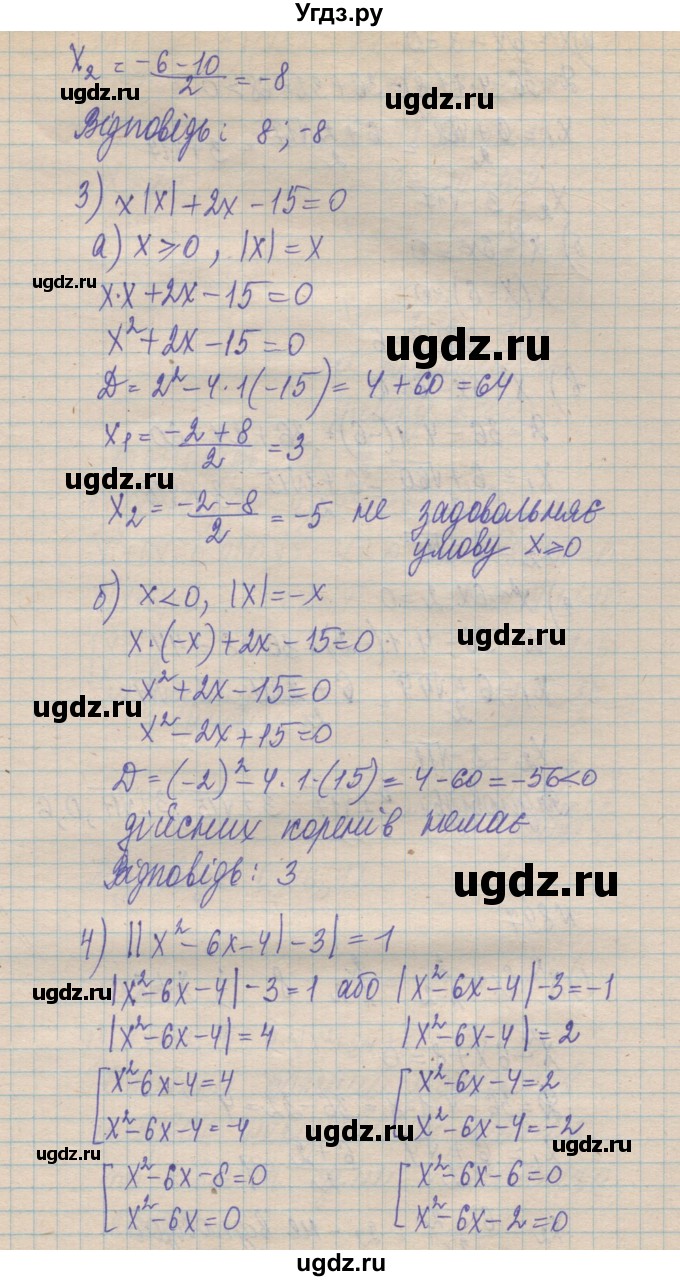 Угдз.ру
x₂ = (-6-10)/2 = -8
ugdz.ru ugdz.ru
Відповідь: 8; -8
3) x|x|+2x-15=0
ugdz.ru
а) x≥0, |x|=x
ugdz.ru
x·x+2x-15=0
x²+2x-15=0
ugdz.ru
D=2²-4·1(-15)=4+60=64
x₁=(-2+8)/2=3
ugdz.ru
x₂=(-2-8)/2=-5 не задовольняє
умову x≥0
б) x<0, |x|=-x
x·(-x)+2x-15=0
ugdz.ru
-x²+2x-15=0
ugdz.ru
x²-2x+15=0
D=(-2)²-4·1·(15)=4-60=-56<0
дійсних коренів немає
Відповідь: 3
ugdz.ru
4) ||x²-6x-4|-3|=1
|x²-6x-4|-3=1 або |x²-6x-4|-3=-1
ugdz.ru
|x²-6x-4|=4 |x²-6x-4|=2
[x²-6x-4=4 [x²-6x-4=2
x²-6x-4=-4 x²-6x-4=-2
ugdz.ru ugdz.ru
[x²-6x-8=0 [x²-6x-6=0
x²-6x=0 x²-6x-2=0
ugdz.ru